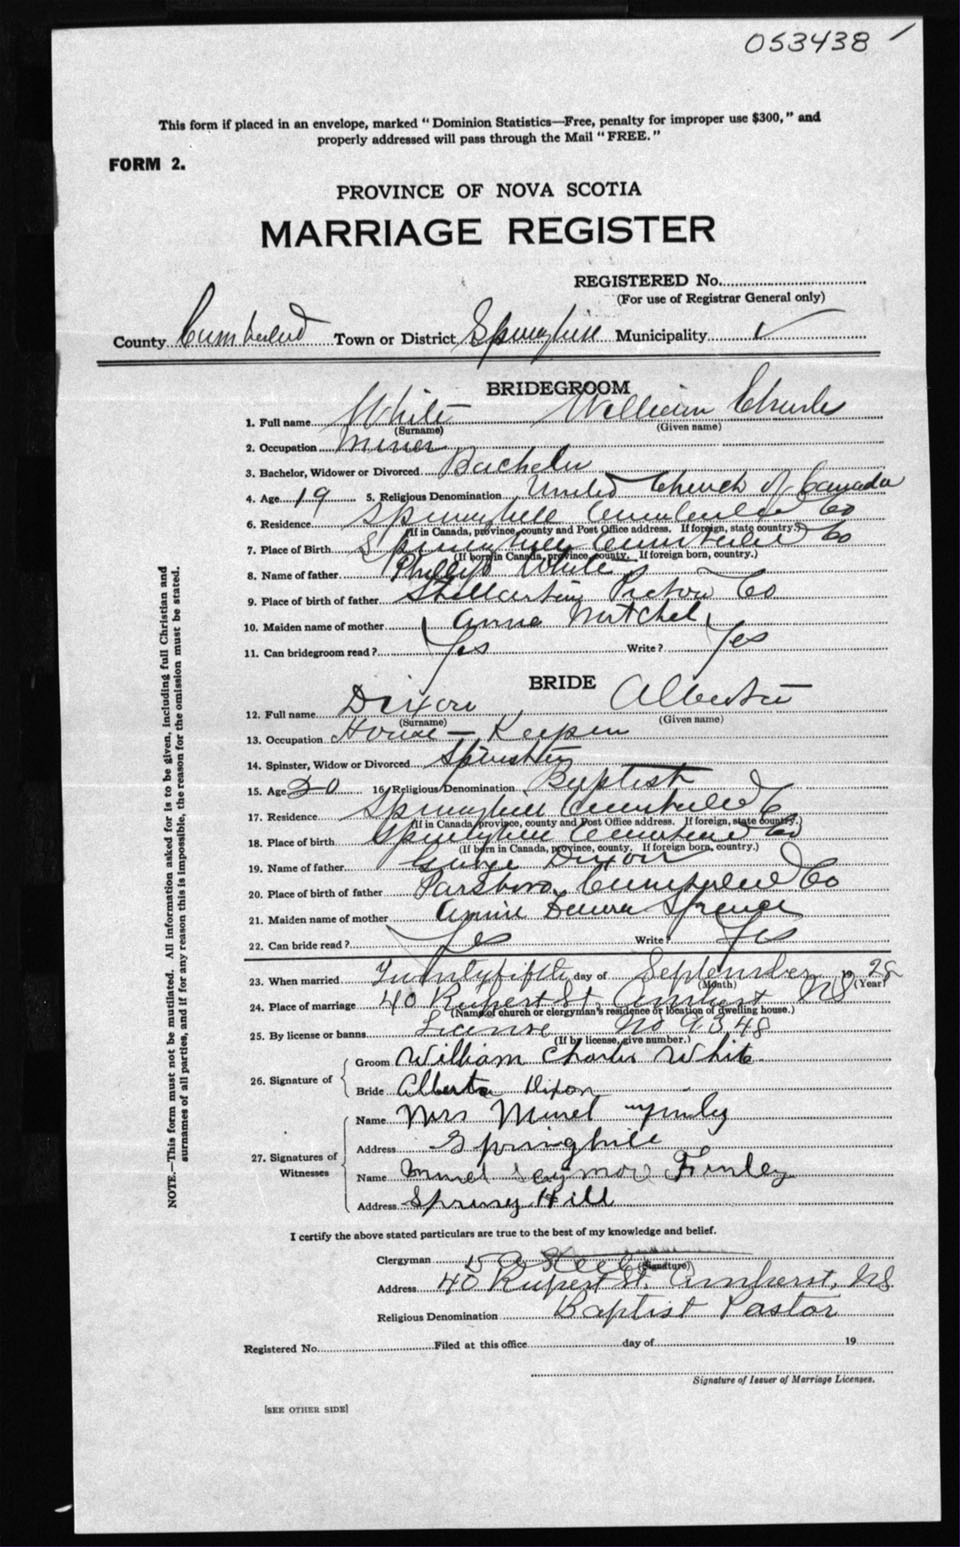 053438
This form if placed in an envelope, marked "Dominion Statistics—Free, penalty for improper use $300," and
properly addressed will pass through the Mail "FREE."
FORM 2.
PROVINCE OF NOVA SCOTIA
MARRIAGE REGISTER
REGISTERED No.
(For use of Registrar General only)
County Cumberland Town or District Springhill Municipality ✓
BRIDEGROOM
1. Full name White William Charles
(Surname) (Given name)
2. Occupation Miner
3. Bachelor, Widower or Divorced Bachelor
4. Age 19 5. Religious Denomination United Church of Canada
6. Residence Springhill Cumberland Co
(If in Canada, province, county and Post Office address. If foreign, state country.)
7. Place of Birth Springhill Cumberland Co
(If born in Canada, province, county. If foreign born, country.)
8. Name of father Phillip White
9. Place of birth of father Stellarton Pictou Co
10. Maiden name of mother Annie Mitchel
11. Can bridegroom read? Yes Write? Yes
BRIDE
12. Full name Dixon Alberta
(Surname) (Given name)
13. Occupation House-Keeper
14. Spinster, Widow or Divorced Spinster
15. Age 20 16. Religious Denomination Baptist
17. Residence Springhill Cumberland Co
(If in Canada, province, county and Post Office address. If foreign, state country.)
18. Place of birth Springhill Cumberland Co
(If born in Canada, province, county. If foreign born, country.)
19. Name of father George Dixon
20. Place of birth of father Parsboro, Cumberland Co
21. Maiden name of mother Annie Spence
22. Can bride read? Yes Write? Yes
23. When married Twentyfifth day of September 1928
(Month) (Year)
24. Place of marriage 40 Rupert St. Amherst NS
(Name of church or clergyman's residence or location of dwelling house.)
25. By license or banns License No 9348
(If by license, give number.)
26. Signature of Groom William Charles White
Bride Alberta Dixon
27. Signatures of Witnesses
Name Mrs Muriel
Address Springhill
Name Muriel Seymour Finley
Address Spring Hill
I certify the above stated particulars are true to the best of my knowledge and belief.
Clergyman
(Signature)
Address 40 Rupert St. Amherst, NS
Religious Denomination Baptist Pastor
Registered No. Filed at this office day of 19
Signature of Issuer of Marriage Licenses.
[SEE OTHER SIDE]
NOTE.—This form must not be mutilated. All information asked for is to be given, including full Christian and
surnames of all parties, and if for any reason this is impossible, the reason for the omission must be stated.